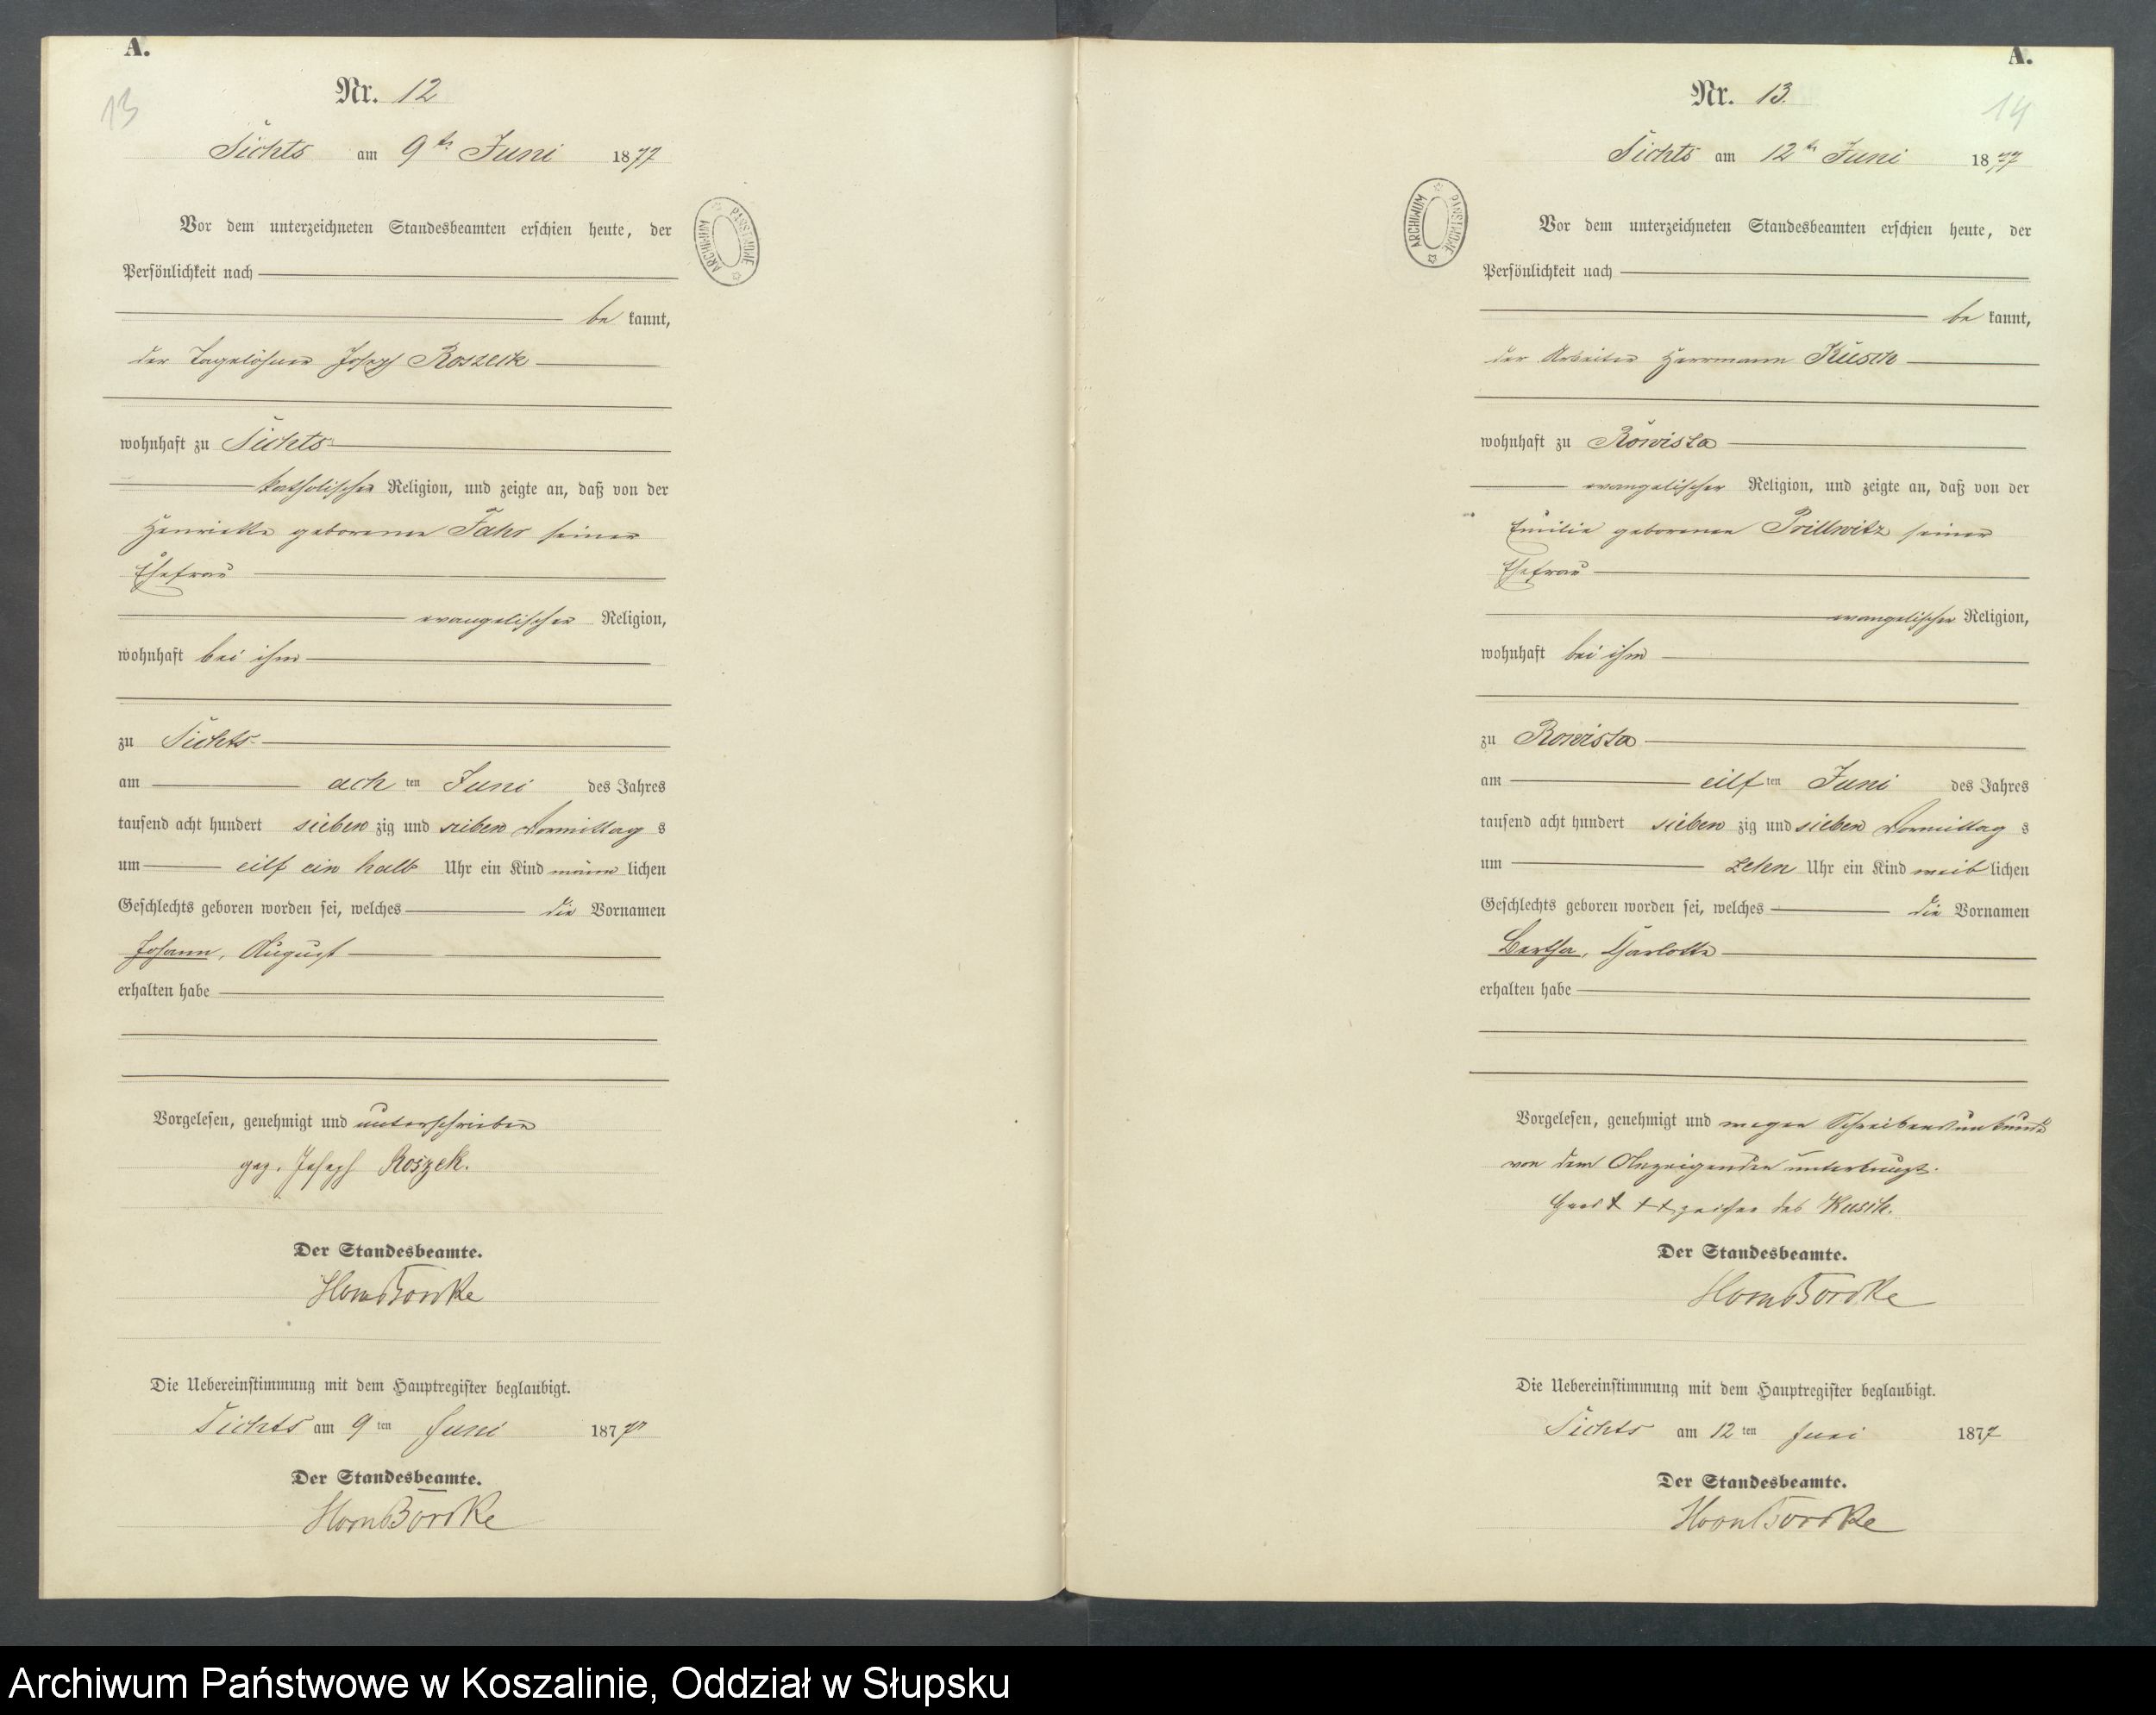 A.
13
Nr. 12
Sichts am 9ten Juni 1877
Vor dem unterzeichneten Standesbeamten erschien heute, der
Persönlichkeit nach
be kannt,
der Tagelöhner Joseph Roszeck
wohnhaft zu Sichts
katholischer Religion, und zeigte an, daß von der
Henriette geborenen Fahr seiner
Ehefrau
evangelischer Religion,
wohnhaft bei ihm
zu Sichts
am ach ten Juni des Jahres
tausend acht hundert sieben zig und sieben Vormittag s
um eilf ein halb Uhr ein Kind männ lichen
Geschlechts geboren worden sei, welches die Vornamen
Johann, August
erhalten habe
Vorgelesen, genehmigt und unterschrieben
gez. Joseph Roszek.
Der Standesbeamte.
Die Uebereinstimmung mit dem Hauptregister beglaubigt.
Sichts am 9 ten Juni 1877
Der Standesbeamte.
ARCHIWUM PAŃSTWOWE
A.
14
Nr. 13.
Sichts am 12ten Juni 1877
Vor dem unterzeichneten Standesbeamten erschien heute, der
Persönlichkeit nach
be kannt,
der Arbeiter Herrmann
wohnhaft zu
evangelischer Religion, und zeigte an, daß von der
Emilie geborenen Prillwitz seiner
Ehefrau
evangelischer Religion,
wohnhaft bei ihm
zu
am eilf ten Juni des Jahres
tausend acht hundert sieben zig und sieben Vormittag s
um zehn Uhr ein Kind weib lichen
Geschlechts geboren worden sei, welches die Vornamen
Bertha, Charlotte
erhalten habe
Vorgelesen, genehmigt und wegen Schreibensunkunde
von dem Anzeigenden unterkreuzt.
+ + + zeichen des
Der Standesbeamte.
Die Uebereinstimmung mit dem Hauptregister beglaubigt.
Sichts am 12 ten Juni 1877
Der Standesbeamte.
ARCHIWUM PAŃSTWOWE
Archiwum Państwowe w Koszalinie, Oddział w Słupsku